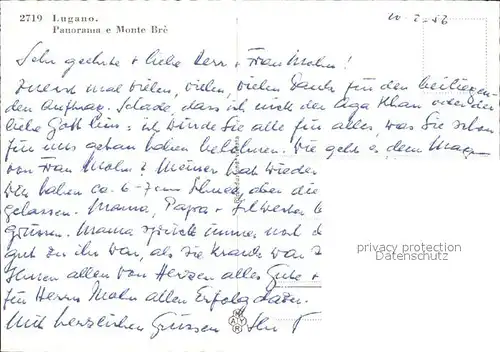 2719 Lugano.
Panorama e Monte Brè
10. 2. 56
Sehr geehrte + liebe Herr + Frau Mohn!
Zuerst mal vielen, vielen, vielen Dank für den beiliegen-
den Auftrag. Schade, dass ich nicht der Aga Khan oder der
liebe Gott bin: ich würde Sie alle für alles, was Sie schon
für uns getan haben belohnen. Wie geht es dem Magen
von Frau Mohn? Meiner hat wieder
Wir haben ca. 6-7 cm Schnee, aber die
gelassen. Mama, Papa + Silvester
grüssen. Mama spricht immer noch
gut zu ihr war, als sie krank war
Ihnen allen von Herzen alles Gute +
für Herrn Mohn allen Erfolg dazu.
Mit herzlichen Grüssen Ihr
privacy protection
Datenschutz